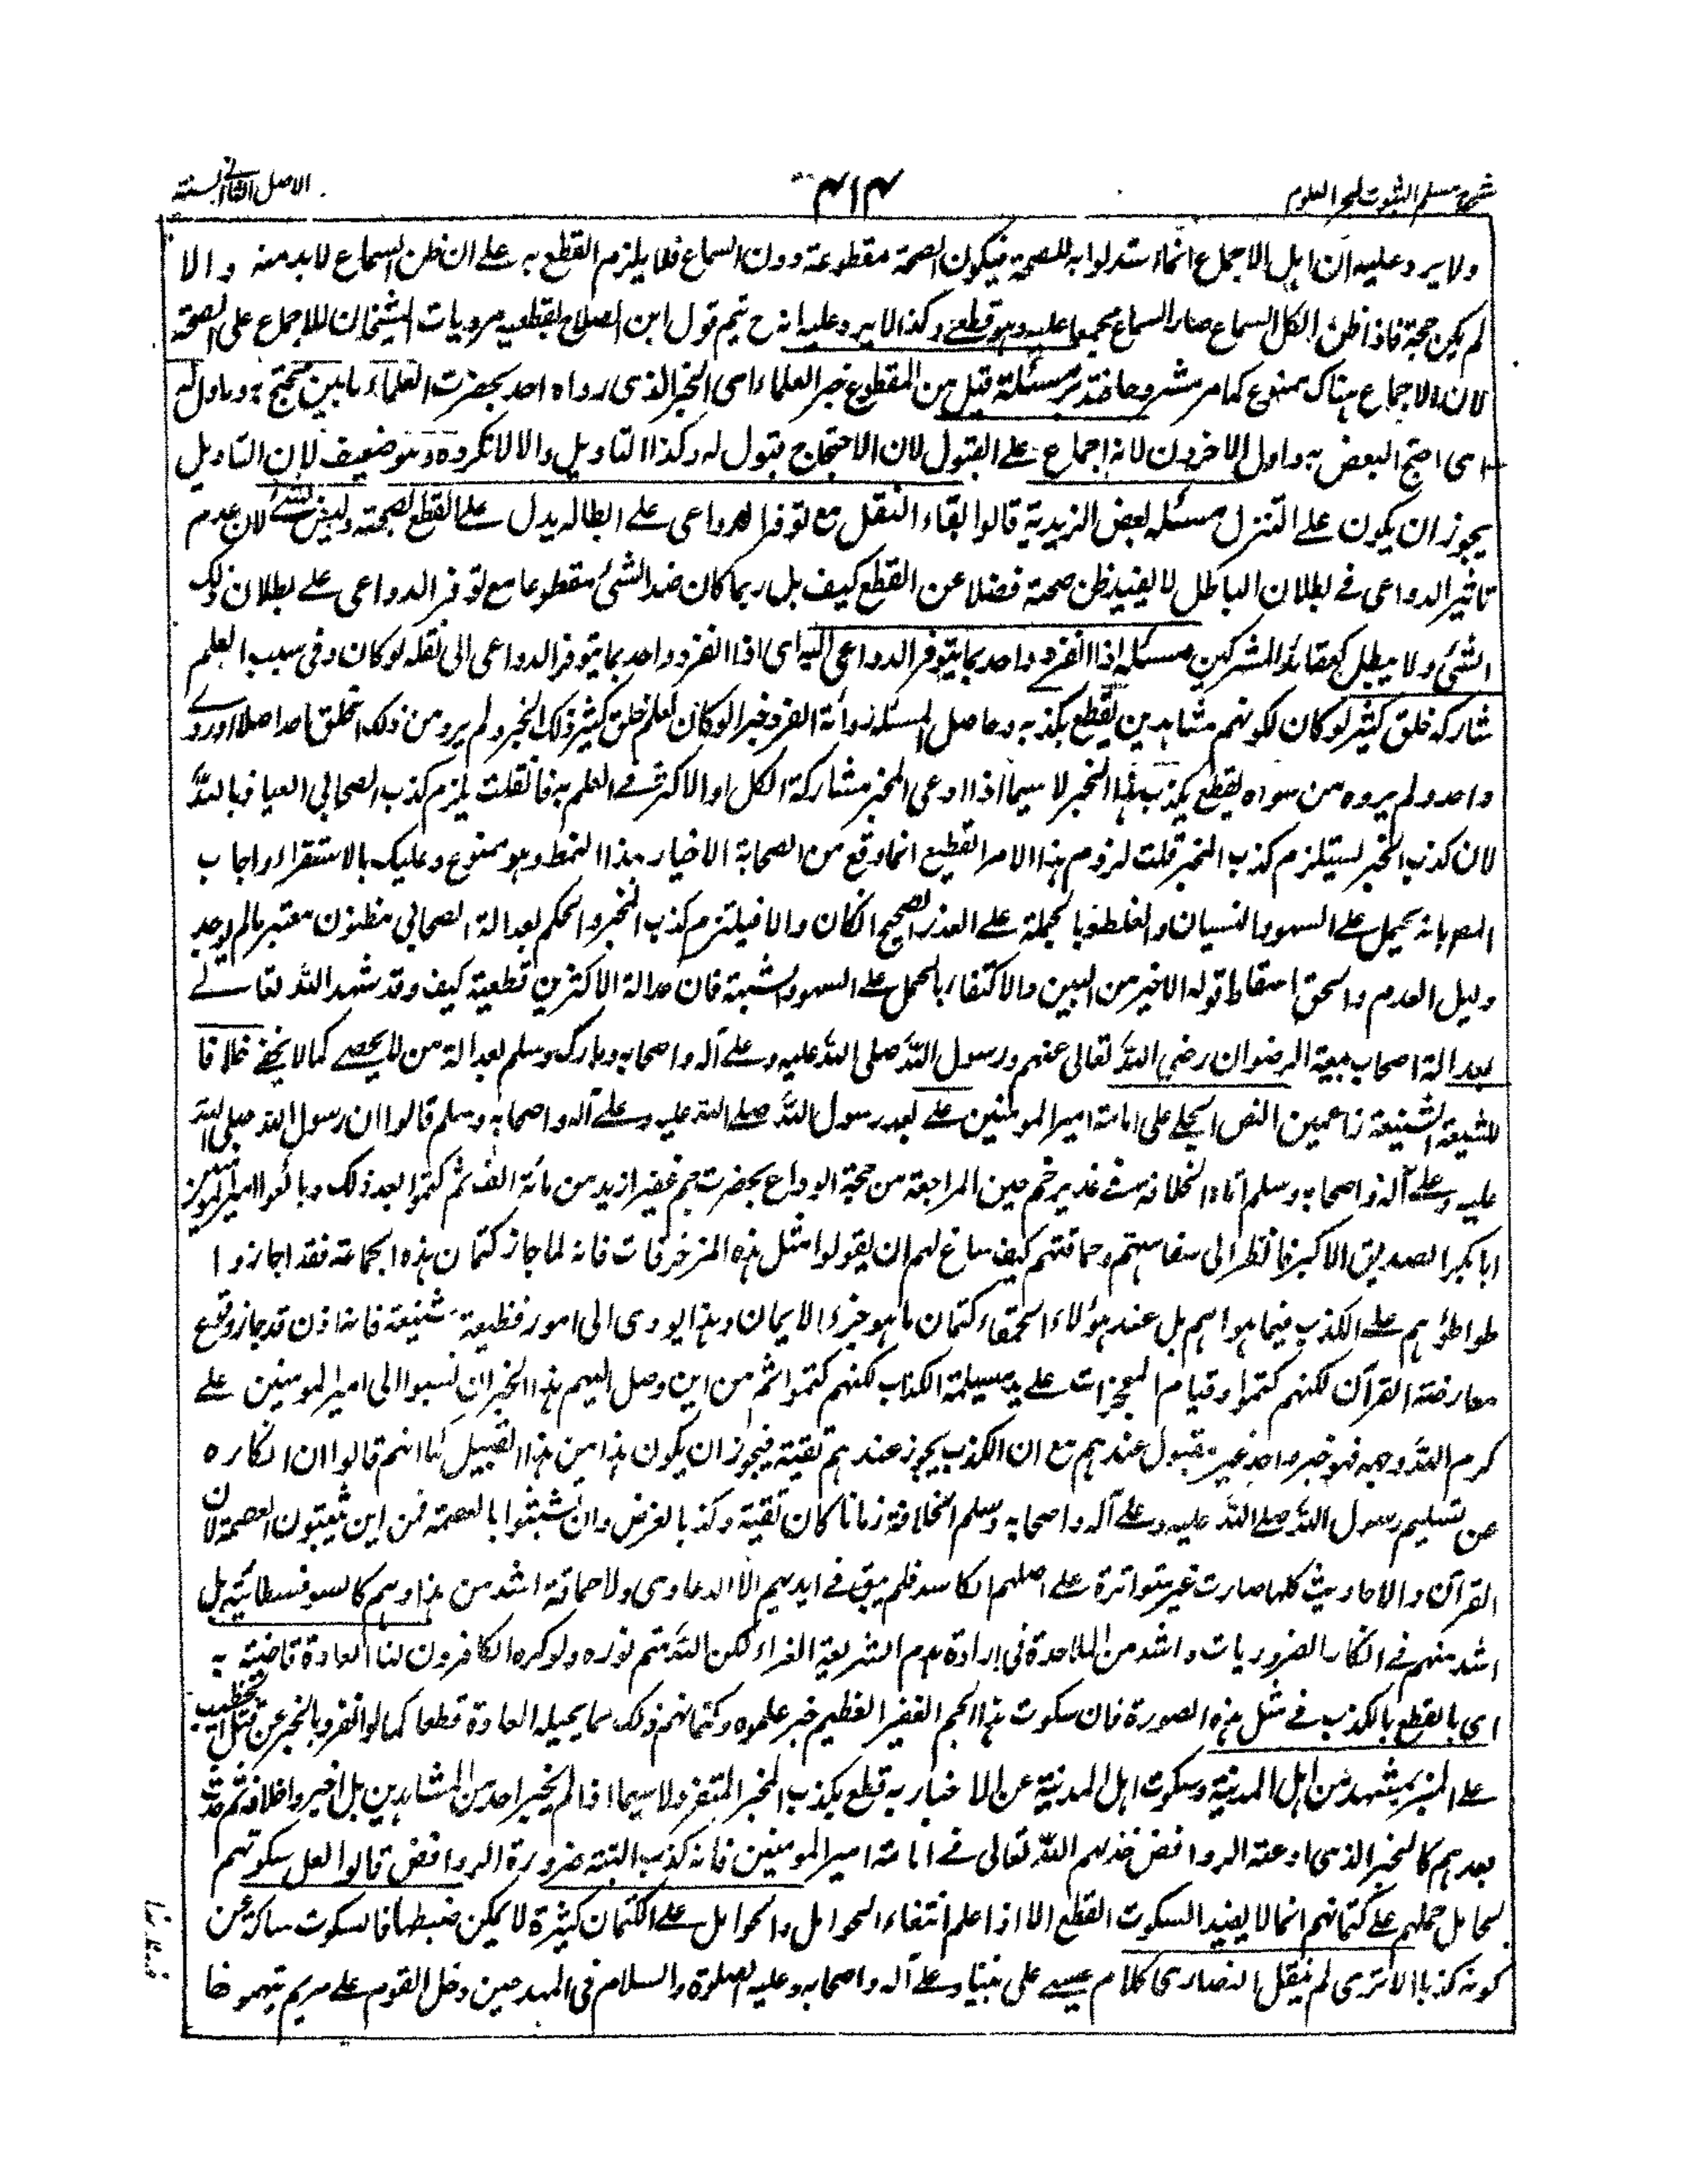 شرح مسلم الثبوت لبحر العلوم
۴۱۴
الاصل الثانی السنة
ولا يرد عليه ان اهل الاجماع انما استدلوا به للصحة فيكون الصحة مقطوعة دون السماع فلا يلزم القطع به على ان ظن السماع لابد منه والا
لم يكن حجة فاذا ظن الكل السماع صار السماع مجمعا عليه وهو قطعي وكذا لا يرد عليه انه ح يتم قول ابن الصلاح بقطعية مرويات الشيخان للاجماع على الصحة
لان الاجماع هناك ممنوع كما مر مشروحا فتدبر مسئلة قيل من المقطوع خبر العلماء اى الخبر الذى رواه احد بحضرت العلماء ما بين محتج به وماول له
اى احتج البعض به واول الاخرون لانه اجماع على القبول لان الاحتجاج قبول له وكذا التاويل والا لانكروه وهو ضعيف لان التاويل
يجوز ان يكون على التنزل مسئلة بعض الزيدية قالوا بقاء النقل مع توفر الدواعى على ابطاله يدل على القطع بصحته وليس بشئ لان عدم
تاثير الدواعى فى بطلان الباطل لا يفيد ظن صحته فضلا عن القطع كيف بل ربما كان ضد الشئ مقطوعا مع توفر الدواعى على بطلان ذلك
الشئ ولا يبطل كعقائد المشركين مسئلة اذا انفرد واحد بما يتوفر الدواعى اليه اى اذا انفرد واحد بما يتوفر الدواعى الى نقله لو كان وفى سبب العلم
شاركه خلق كثير لو كان لكونهم مشاهدين يقطع بكذبه وحاصل المسئلة انه الفرد خبرا لو كان لعلم خلق كثير ذلك الخبر ولم يرو من ذلك الخلق احد اصلا او روى
واحد ولم يروه من سواه يقطع بكذب هذا الخبر لا سيما اذا ادعى المخبر مشاركة الكل او الاكثر فى العلم به فان قلت يلزم كذب الصحابى العياذ بالله
لان كذب الخبر يستلزم كذب المخبر قلت لزوم هذا الامر القطيع انما وقع من الصحابة الاخيار هذا النمط وهو ممنوع وعليك بالاستقراء واجاب
المصر بانه يحمل على السهو والنسيان والغلط وبالجملة على العذر الصحيح انكان والا فيلتزم كذب المخبر والحكم بعدالة الصحابى مظنون معتبر مالم يوجد
دليل العدم والحق اسقاط قوله الاخير من البين والاكتفاء بالحمل على السهو والشبهة فان عدالة الاكثرين قطعية كيف وقد شهد الله تعالى
بعدالة اصحاب بيعة الرضوان رضى الله تعالى عنهم ورسول الله صلى الله عليه وعلى آله واصحابه وبارك وسلم بعدالة من لا يحصى كما لا يخفى خلافا
للشيعة الشنيعة زاعمين النص الجلى على امامة امير المومنين على بعد رسول الله صلى الله عليه وعلى آله واصحابه وسلم قالوا ان رسول الله صلى الله
عليه وعلى آله واصحابه وسلم اتاه الخلافة فى غدير خم حين المراجعة من حجة الوداع بحضرت جم غفير ازيد من مائة الف ثم كتموا بعد ذلك وبائعوا امير المومنين
ابا بكر الصديق الاكبر فانظر الى سفاهتهم وحماقتهم كيف ساغ لهم ان يقولوا مثل هذه المزخرفات فانه لما جاز كتمان هذه الجماعة فقد اجازوا
طواطؤهم على الكذب فيما هو اهم بل عند هؤلاء الحمقاء كتمان ما هو جزء الايمان وهذا يودى الى امور فظيعة شنيعة فانه اذن قد جاز وقوع
معارضة القرآن لكنهم كتموا وقيام المعجزات على يد مسيلمة الكذاب لكنهم كتموا ثم من اين وصل اليهم هذا الخبر ان نسبوا الى امير المومنين على
كرم الله وجهه فهو خبر واحد غير مقبول عندهم مع ان الكذب يجوز عندهم تقية فيجوز ان يكون هذا من هذا القبيل كما انهم قالوا ان انكاره
عن تسليم رسول الله صلى الله عليه وعلى آله واصحابه وسلم الخلافة زمانا كان تقية وكذبا لغرض وان تشبثوا بالعصمة فمن اين يثبتون العصمة لان
القرآن والاحاديث كلها صارت غير متواترة على اصلهم الكاسد فلم يبق فى ايديهم الا الدعاوى ولا حماقة اشد من هذا وهم كالسوفسطائية بل
اشد منهم فى انكار الضروريات واشد من الملاحدة فى ارادة هدم الشريعة الغراء لكن الله متم نوره ولو كره الكافرون لنا العادة قاضية به
اى بالقطع بالكذب فى مثل هذه الصورة فان سكوت هذا الجم الغفير العظيم خبر علموه وكتمانهم ذلك مما يحيله العادة قطعا كما لو انفرد بالخبر عن قتل خطيب
على المنبر بمشهد من اهل المدينة وسكوت اهل المدينة عن الاخبار به قطع بكذب المخبر المتفرد لا سيما اذا لم يخبر احد من المشاهدين بل اخبروا خلافه ثم حدث
بعدهم كالخبر الذى ادعته الروافض خذلهم الله تعالى فى امامة امير المومنين فانه كذب البتة ضرورة الروافض قالوا لعل سكوتهم
لحامل حملهم على كتمانهم انما لا يفيد السكوت القطع الا اذا علم انتفاء الحوامل والحوامل على الكتمان كثيرة لا يمكن ضبطها فالسكوت ساكت عن
كونه كذبا الا ترى لم ينقل النصارى كلام عيسى على نبينا وعلى آله واصحابه وعليه الصلوة والسلام فى المهد حين دخل القوم على مريم يتهموها